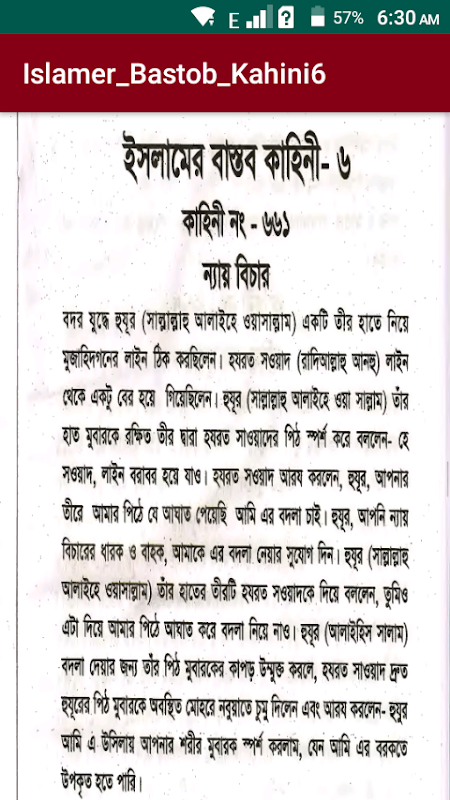 E 57% 6:30 AM
Islamer_Bastob_Kahini6
ইসলামের বাস্তব কাহিনী- ৬
কাহিনী নং - ৬৬১
ন্যায় বিচার
বদর যুদ্ধে হুযূর (সাল্লাল্লাহু আলাইহে ওয়াসাল্লাম) একটি তীর হাতে নিয়ে
মুজাহিদগনের লাইন ঠিক করছিলেন। হযরত সওয়াদ (রাদিআল্লাহু আনহু) লাইন
থেকে একটু বের হয়ে গিয়েছিলেন। হুযূর (সাল্লাল্লাহু আলাইহে ওয়া সাল্লাম) তাঁর
হাত মুবারকে রক্ষিত তীর দ্বারা হযরত সওয়াদের পিঠ স্পর্শ করে বললেন- হে
সওয়াদ, লাইন বরাবর হয়ে যাও। হযরত সওয়াদ আরয করলেন, হুযূর, আপনার
তীরে আমার পিঠে যে আঘাত পেয়েছি আমি এর বদলা চাই। হুযূর, আপনি ন্যায়
বিচারের ধারক ও বাহক, আমাকে এর বদলা নেয়ার সুযোগ দিন। হুযূর (সাল্লাল্লাহু
আলাইহে ওয়াসাল্লাম) তাঁর হাতের তীরটি হযরত সওয়াদকে দিয়ে বললেন, তুমিও
এটা দিয়ে আমার পিঠে আঘাত করে বদলা নিয়ে নাও। হুযূর (আলাইহিস সালাম)
বদলা দেয়ার জন্য তাঁর পিঠ মুবারকের কাপড় উম্মুক্ত করলে, হযরত সওয়াদ দ্রুত
হুযূরের পিঠ মুবারকে অবস্থিত মোহরে নবুয়াতে চুমু দিলেন এবং আরয করলেন- হুযুর
আমি এ উসিলায় আপনার শরীর মুবারক স্পর্শ করলাম, যেন আমি এর বরকতে
উপকৃত হতে পারি।